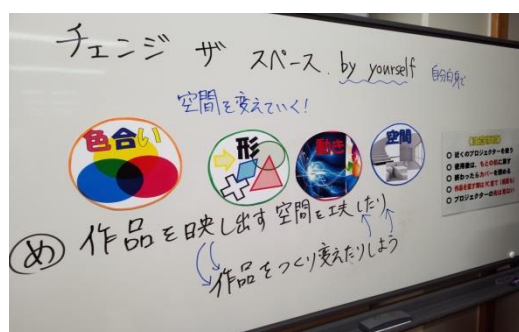 チェンジ ザ スペース by yourself 自分自身で
空間を変えていく!
色合い
形
動き
空間
め 作品を映し出す空間を工夫したり
作品をつくり変えたりしよう
○ 近くのプロジェクターを使う